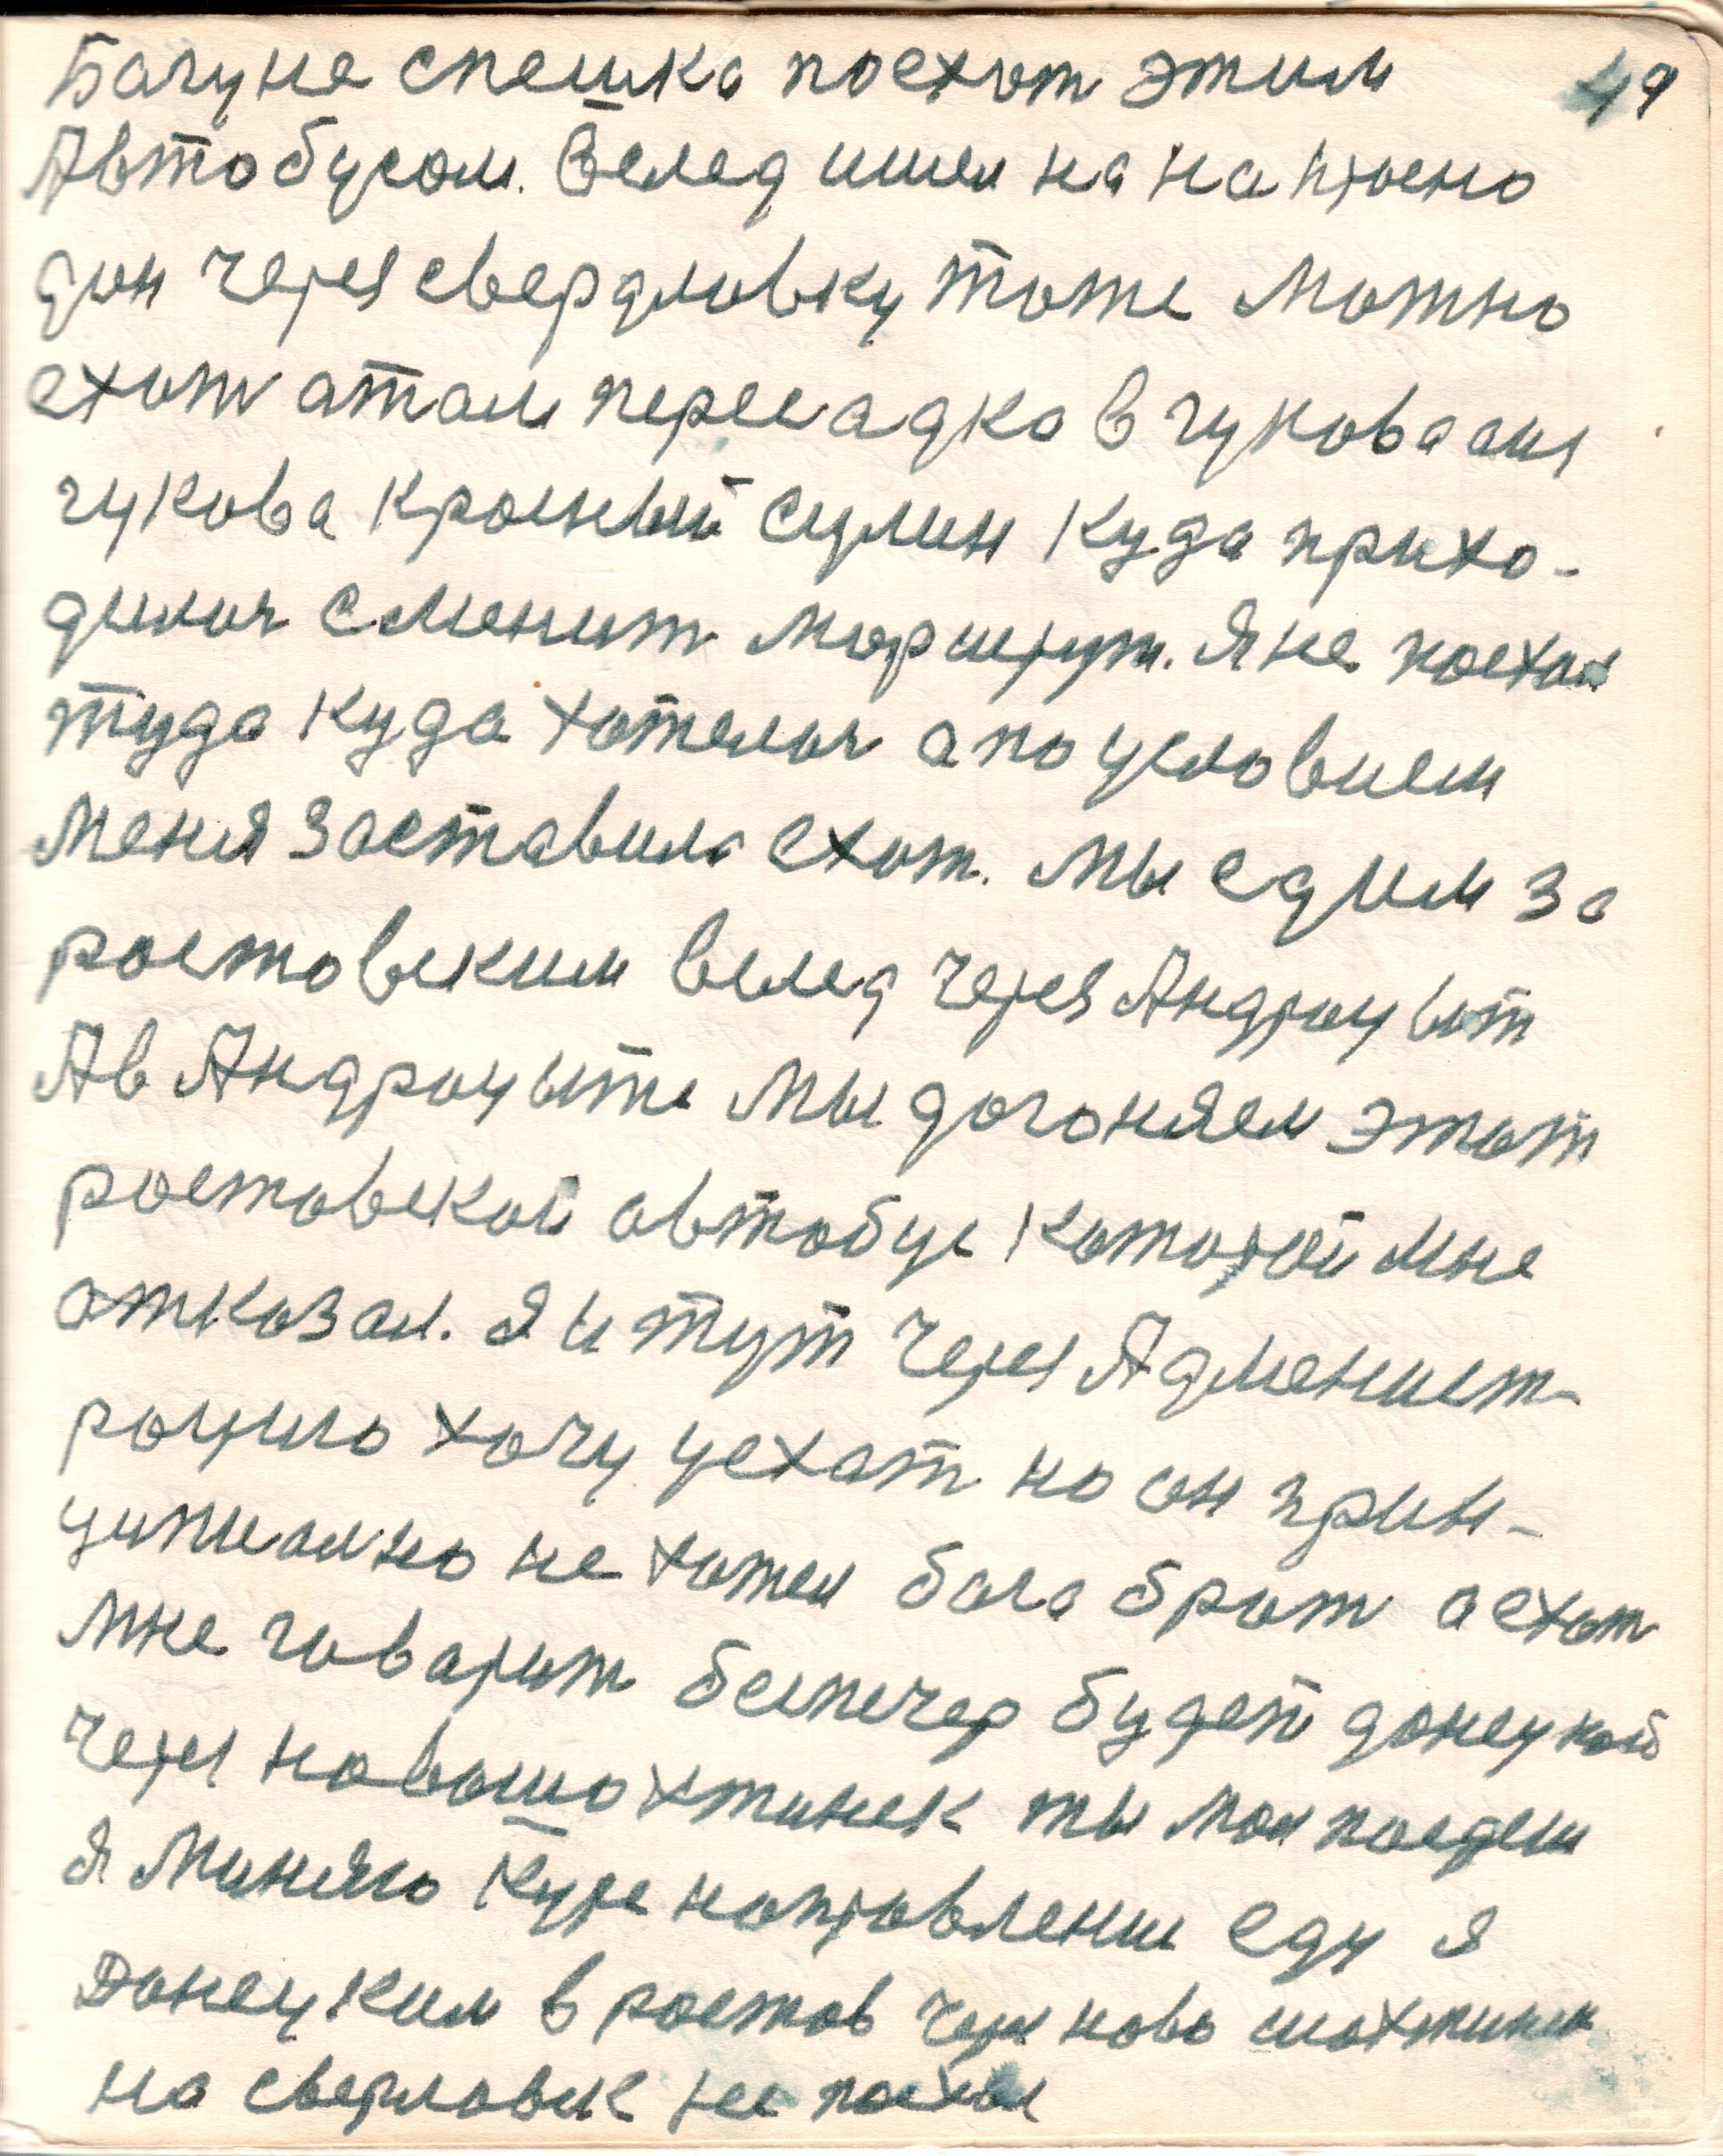 Бачу не спешка поехат этим 49
Автобусом. Вслед ишел на на Прено
дон через свердловку тоже можно
ехат атам пересадка в гукова аиз
гукова кросный сулин куда прихо-
дилос сменит моршрут. Я не поехал
туда куда хотелос апо условием
меня заставила ехат. Мы едим за
ростовским вслед через Андроцыт
Ав Андроцыте мы догоняем этот
ростовской автобус которой мне
отказал. Я и тут через Админист-
рацию хочу уехат но он прин-
ципиално не хотел бога брат а ехат
мне говарит диспечер будет донецкой
через новошохтинск ты мол поедеш
я миняю Курс направлении еду я
Донецким в ростов через ново шохтинск
на сверловск не поехал